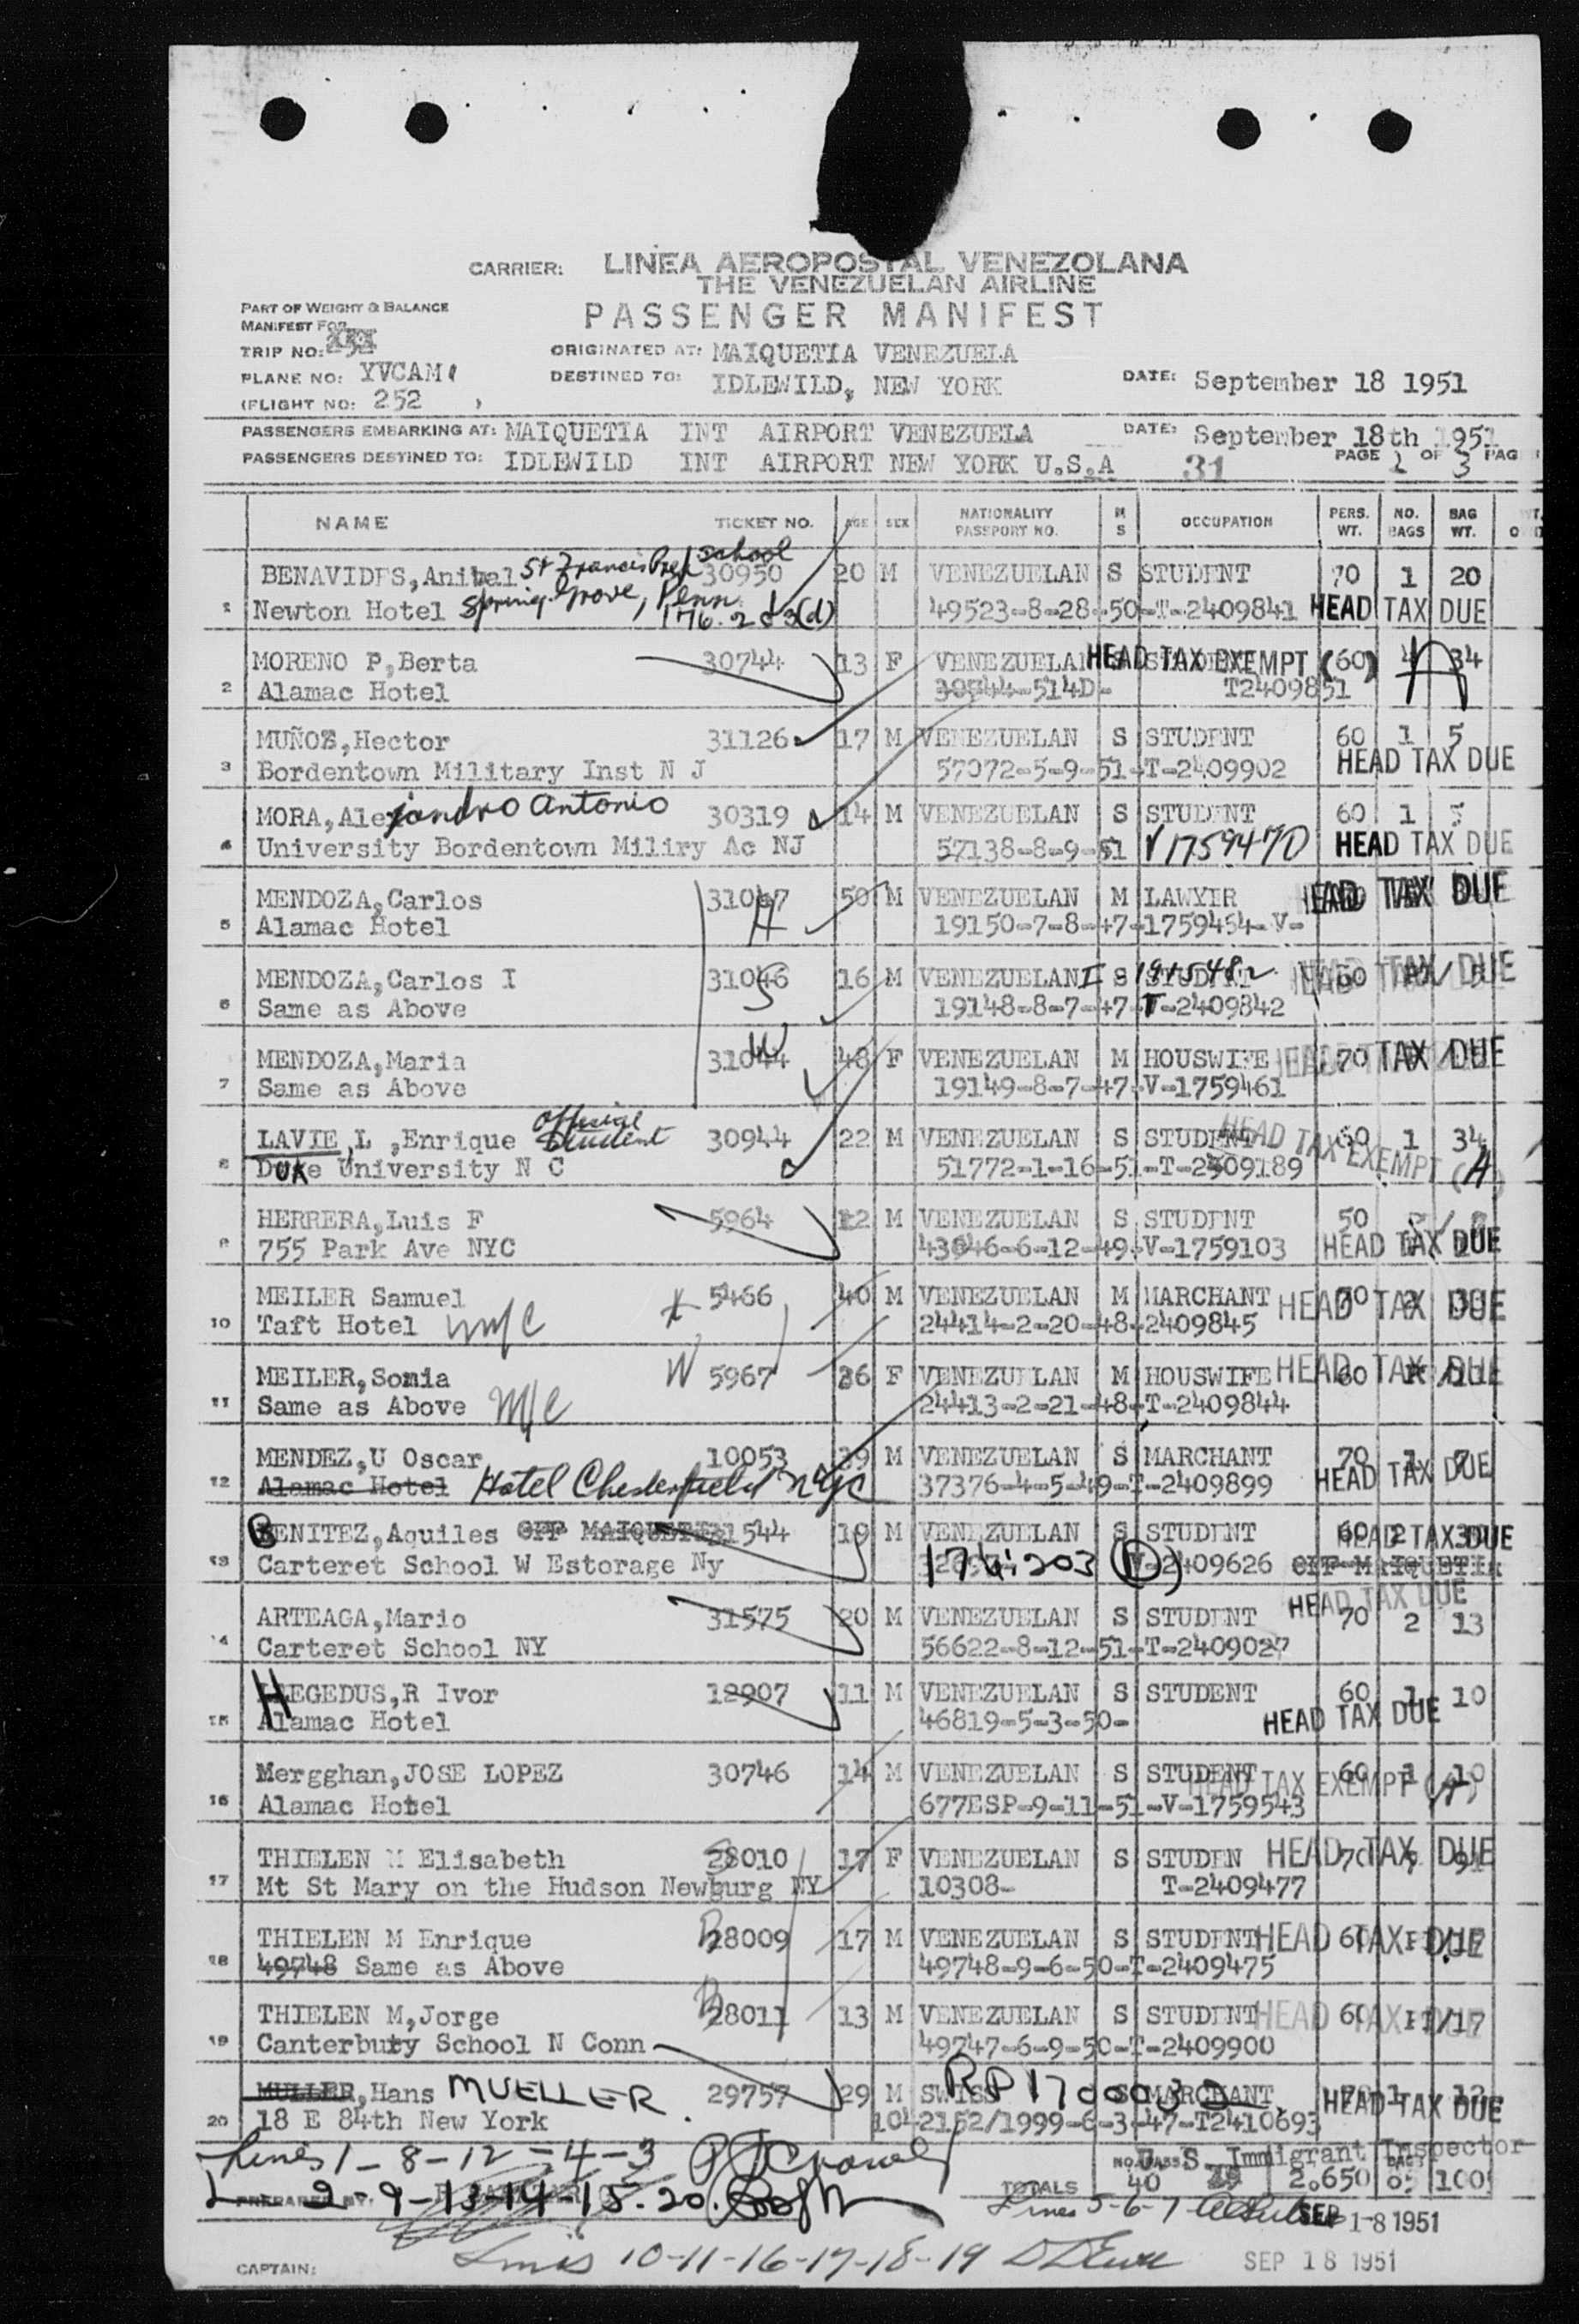 CARRIER: LINEA AEROPOSTAL VENEZOLANA
THE VENEZUELAN AIRLINE
PART OF WEIGHT & BALANCE
MANIFEST FOR
PASSENGER MANIFEST
TRIP NO:
ORIGINATED AT: MAIQUETIA VENEZUELA
PLANE NO: YVCAM
DESTINED TO: IDLEWILD, NEW YORK
DATE: September 18 1951
(FLIGHT NO: 252 )
PASSENGERS EMBARKING AT: MAIQUETIA INT AIRPORT VENEZUELA DATE: September 18th 1951
PASSENGERS DESTINED TO: IDLEWILD INT AIRPORT NEW YORK U.S.A 31 PAGE 1 OF 3 PAG
NAME TICKET NO. AGE SEX NATIONALITY PASSPORT NO. M S OCCUPATION PERS. WT. NO. BAGS BAG WT.
BENAVIDES, Anibal St Francis Prep School 30950 20 M VENEZUELAN S STUDENT 70 1 20
1 Newton Hotel Spring Grove, Penn. 176.203(d) 49523-8-28-50-T-2409841 HEAD TAX DUE
MORENO P, Berta 30744 13 F VENEZUELAN HEAD TAX EXEMPT (60) 34
2 Alamac Hotel 30544-514D- T2409851
MUÑOZ, Hector 31126 17 M VENEZUELAN S STUDENT 60 1 5
3 Bordentown Military Inst N J 57072-5-9-51-T-2409902 HEAD TAX DUE
MORA, Alejandro Antonio 30319 14 M VENEZUELAN S STUDENT 60 1 5
4 University Bordentown Miliry Ac NJ 57138-8-9-51 V1759470 HEAD TAX DUE
MENDOZA, Carlos 31047 H 50 M VENEZUELAN M LAWYER HEAD TAX DUE
5 Alamac Hotel 19150-7-8-47-1759454-V-
MENDOZA, Carlos I 31046 S 16 M VENEZUELAN S STUDENT 60 HEAD TAX DUE
6 Same as Above 19148-8-7-47-T-2409842
MENDOZA, Maria 31044 W 48 F VENEZUELAN M HOUSWIFE 70 HEAD TAX DUE
7 Same as Above 19149-8-7-47-V-1759461
LAVIE, L ,Enrique Official Student 30944 22 M VENEZUELAN S STUDENT 60 1 34
8 Duke University N C 51772-1-16-51-T-2409189 HEAD TAX EXEMPT (A)
HERRERA, Luis F 5964 12 M VENEZUELAN S STUDENT 50
9 755 Park Ave NYC 43646-6-12-49-V-1759103 HEAD TAX DUE
MEILER Samuel H 5466 40 M VENEZUELAN M MARCHANT 70 HEAD TAX DUE
10 Taft Hotel 24414-2-20-48-2409845
MEILER, Sonia W 5967 36 F VENEZUELAN M HOUSWIFE 60 HEAD TAX DUE
11 Same as Above 24413-2-21-48-T-2409844
MENDEZ, U Oscar 10053 39 M VENEZUELAN S MARCHANT 70 1 7
12 Alamac Hotel Hotel Chesterfield NYC 37376-4-5-49-T-2409899 HEAD TAX DUE
BENITEZ, Aquiles OFF MAIQUETIA 31544 19 M VENEZUELAN S STUDENT 60 2 30 HEAD TAX DUE
13 Carteret School W Estorage Ny 176.203 (D) 2409626 OFF MAIQUETIA
ARTEAGA, Mario 31575 20 M VENEZUELAN S STUDENT 70 2 13 HEAD TAX DUE
14 Carteret School NY 56622-8-12-51-T-2409027
HEGEDUS, R Ivor 18907 11 M VENEZUELAN S STUDENT 60 1 10
15 Alamac Hotel 46819-5-3-50- HEAD TAX DUE
Mergghan, JOSE LOPEZ 30746 14 M VENEZUELAN S STUDENT 60 1 10
16 Alamac Hotel 677ESP-9-11-51-V-1759543 HEAD TAX EXEMPT (A)
THIELEN M Elisabeth S 28010 17 F VENEZUELAN S STUDEN 70 HEAD TAX DUE
17 Mt St Mary on the Hudson Newburg NY 10308- T-2409477
THIELEN M Enrique B 28009 17 M VENEZUELAN S STUDENT 60 HEAD TAX DUE
18 49748 Same as Above 49748-9-6-50-T-2409475
THIELEN M, Jorge B 28011 13 M VENEZUELAN S STUDENT 60 17 HEAD TAX DUE
19 Canterbuty School N Conn 49747-6-9-50-T-2409900
MULLER, Hans MUELLER. 29757 29 M SWISS S MARCHANT 1 12
20 18 E 84th New York 104-2152/1999-6-3-47-T2410693 HEAD TAX DUE
Lines 1-8-12-4-3
U. S. Immigrant Inspector
NO. PASS. 40 2.650
L 2-9-13-14-15-20.
PREPARED BY:
TOTALS
Lines 5-6-7 SEP 18 1951
Lines 10-11-16-17-18-19
CAPTAIN: SEP 18 1951